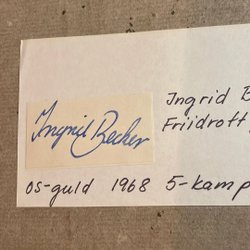 Ingrid Becker
Ingrid B
Friidrott
OS-guld 1968 5-kamp